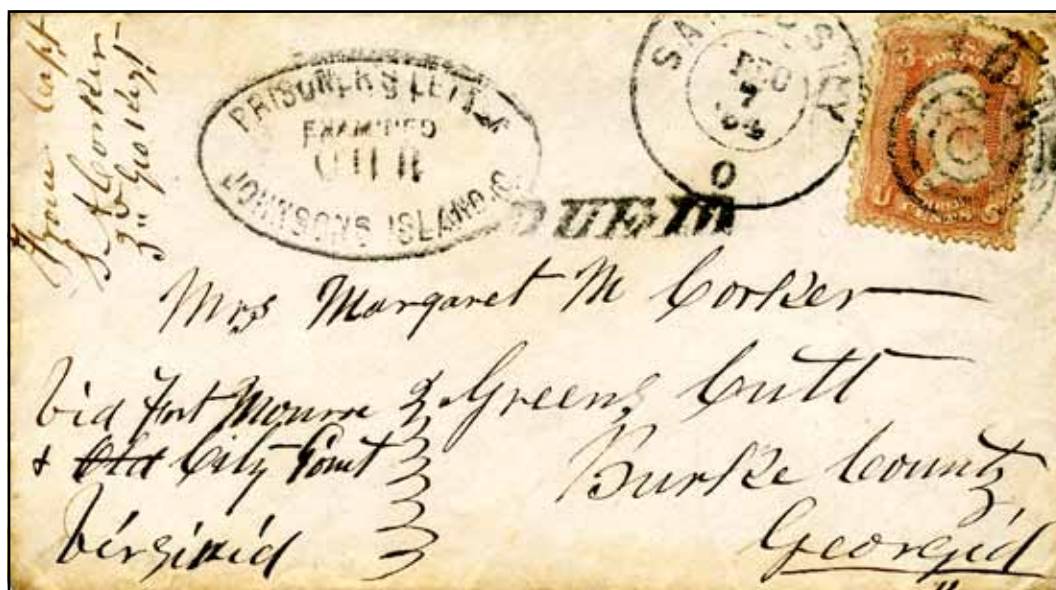 From Capt
S A Corker
3" Geo Regt
PRISONER'S LETTER
EXAMINED
JOHNSON'S ISLAND, O.
SANDUSKY
DEC
7
O
DUE 10
3
Mrs Margaret M Corker
Via Fort Monroe
& Old City Point
Virginia
Greens Cutt
Burke County
Georgia